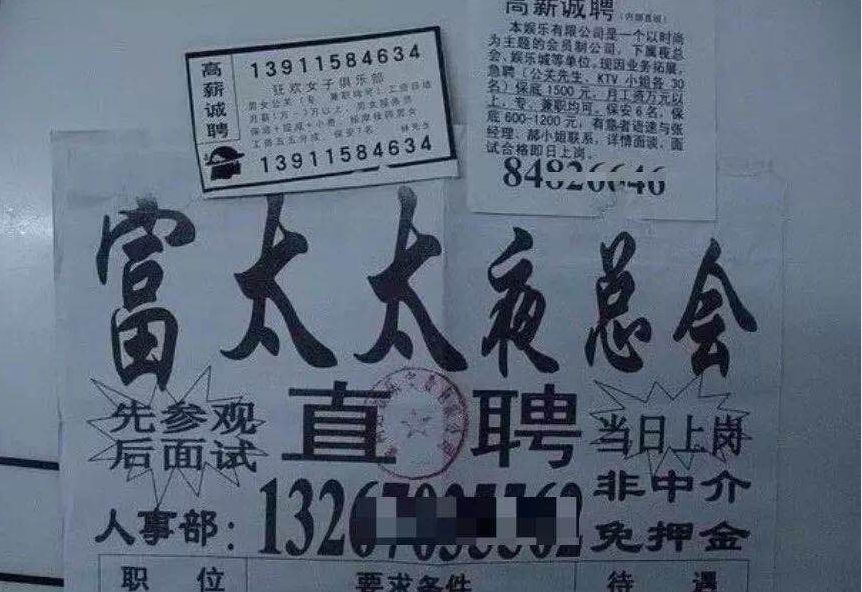 高薪诚聘
13911584634
狂欢女子俱乐部
13911584634
高薪诚聘(内部直板)
本娱乐有限公司是一个以时尚
为主题的会员制公司,下属夜总
会、娱乐城等单位,现因业务拓展,
急聘(公关先生、KTV小姐各30
名)保底1500元,月工资万元以
上,专、兼职均可,保安6名,保
底600-1200元,有意者请速与张
经理、郝小姐联系,详情面谈,面
试合格即日上岗。
84826646
富太太夜总会
先参观
后面试
直聘
当日上岗
人事部:
非中介
免押金
职位 要求条件 待遇